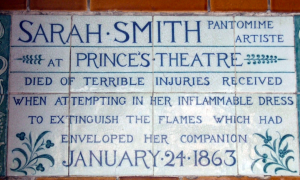 SARAH·SMITH PANTOMIME ARTISTE
AT PRINCE'S·THEATRE
DIED OF TERRIBLE INJURIES RECEIVED
WHEN ATTEMPTING IN HER INFLAMMABLE DRESS
TO EXTINGUISH THE FLAMES WHICH HAD
ENVELOPED HER COMPANION
JANUARY·24·1863